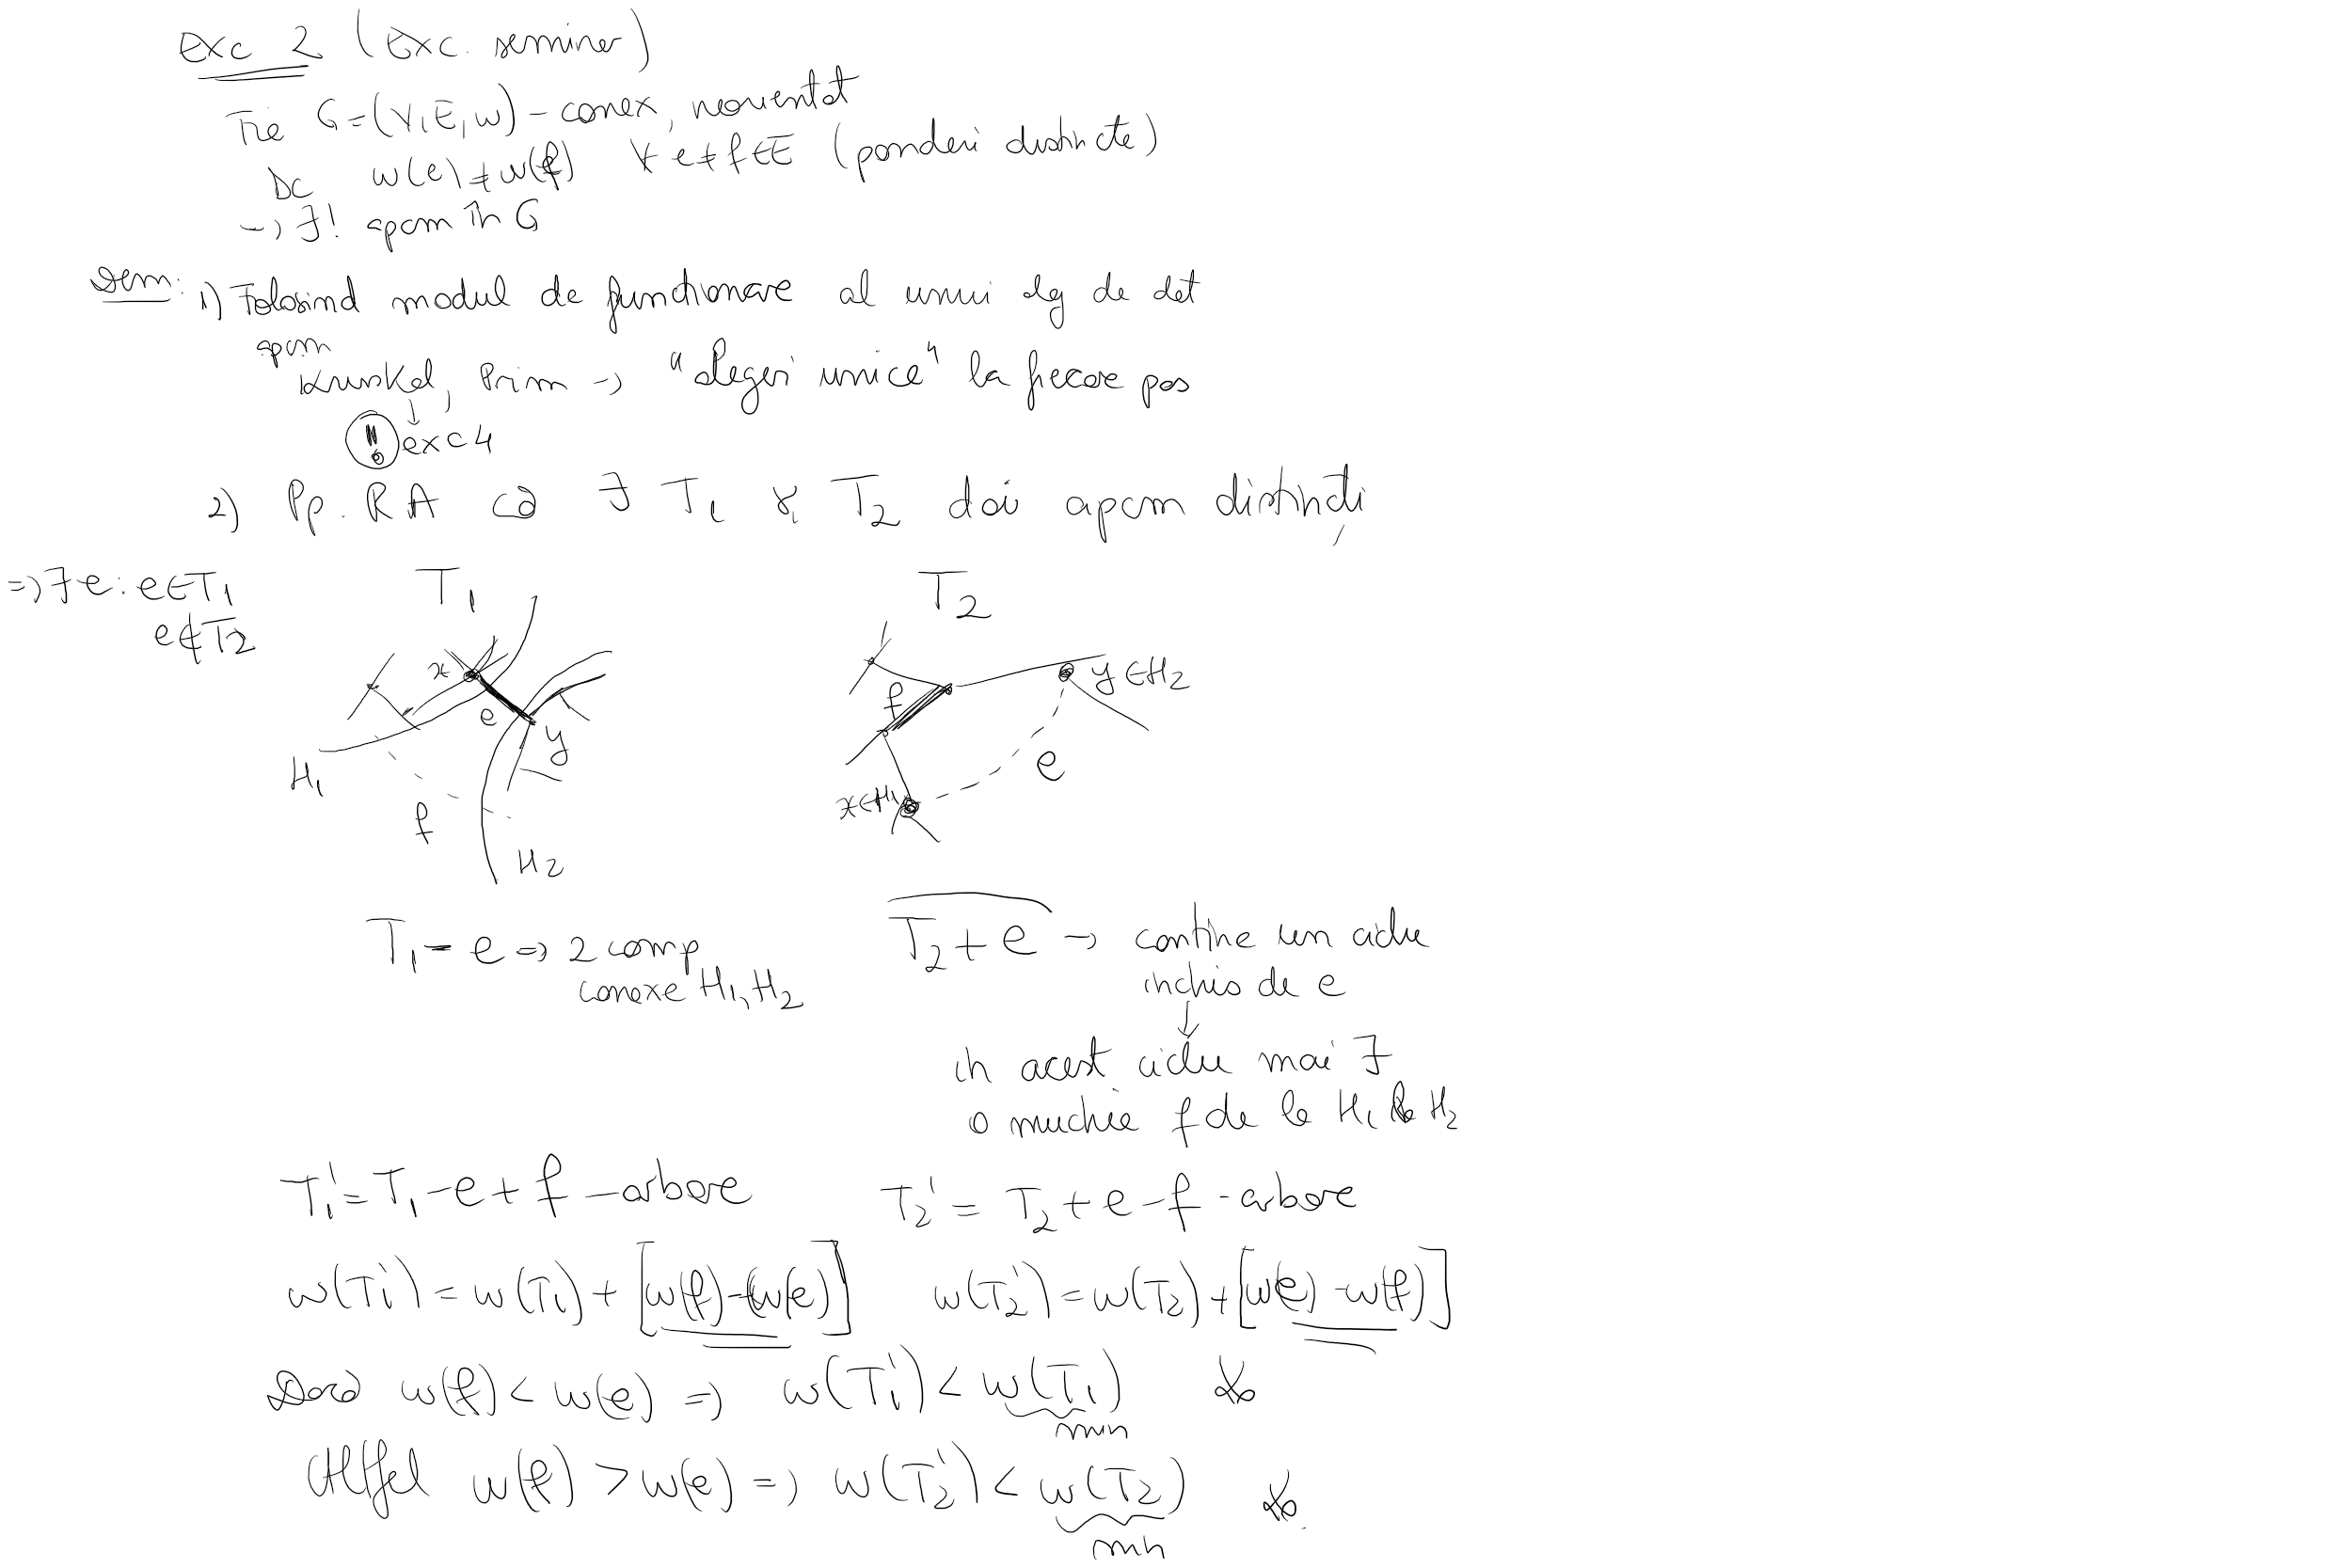 exc 2 (Exc. seminar)
Fie G=(V,E,w) - conex, neorientat
Dc w(e)≠w(f) ∀ e≠f∈E (ponderi distincte)
-> ∃! apcm în G
Dem: 1) Folosind modul de functionare al unui alg de det
apcm
Kruskal, Prim -> "alegeri unice" la fiecare pas
!! exc 4
2) Pp. RA că ∃ T1 și T2 doi apcm distincți
=> ∃ e: e∈T1
e∉T2
T1
T2
x
e
y
H1
f
H2
f
y∈H2
e
x∈H1
T1 - e => 2 comp
conexe H1, H2
T2 + e -> contine un ciclu
inchis de e
in acest ciclu mai ∃
o muchie f de la H1 la H2
T1' = T1 - e + f - arbore
T2' = T2 + e - f - arbore
w(T1') = w(T1) + [w(f) - w(e)]
w(T2') = w(T2) + [w(e) - w(f)]
Dacă w(f) < w(e) => w(T1') < w(T1)
min
Altfel w(f) > w(e) => w(T2') < w(T2)
min